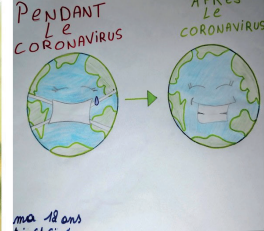 PENDANT
Le
CORONAViRUS
APRÈS
Le
CORONAViRUS
ma 18 ans